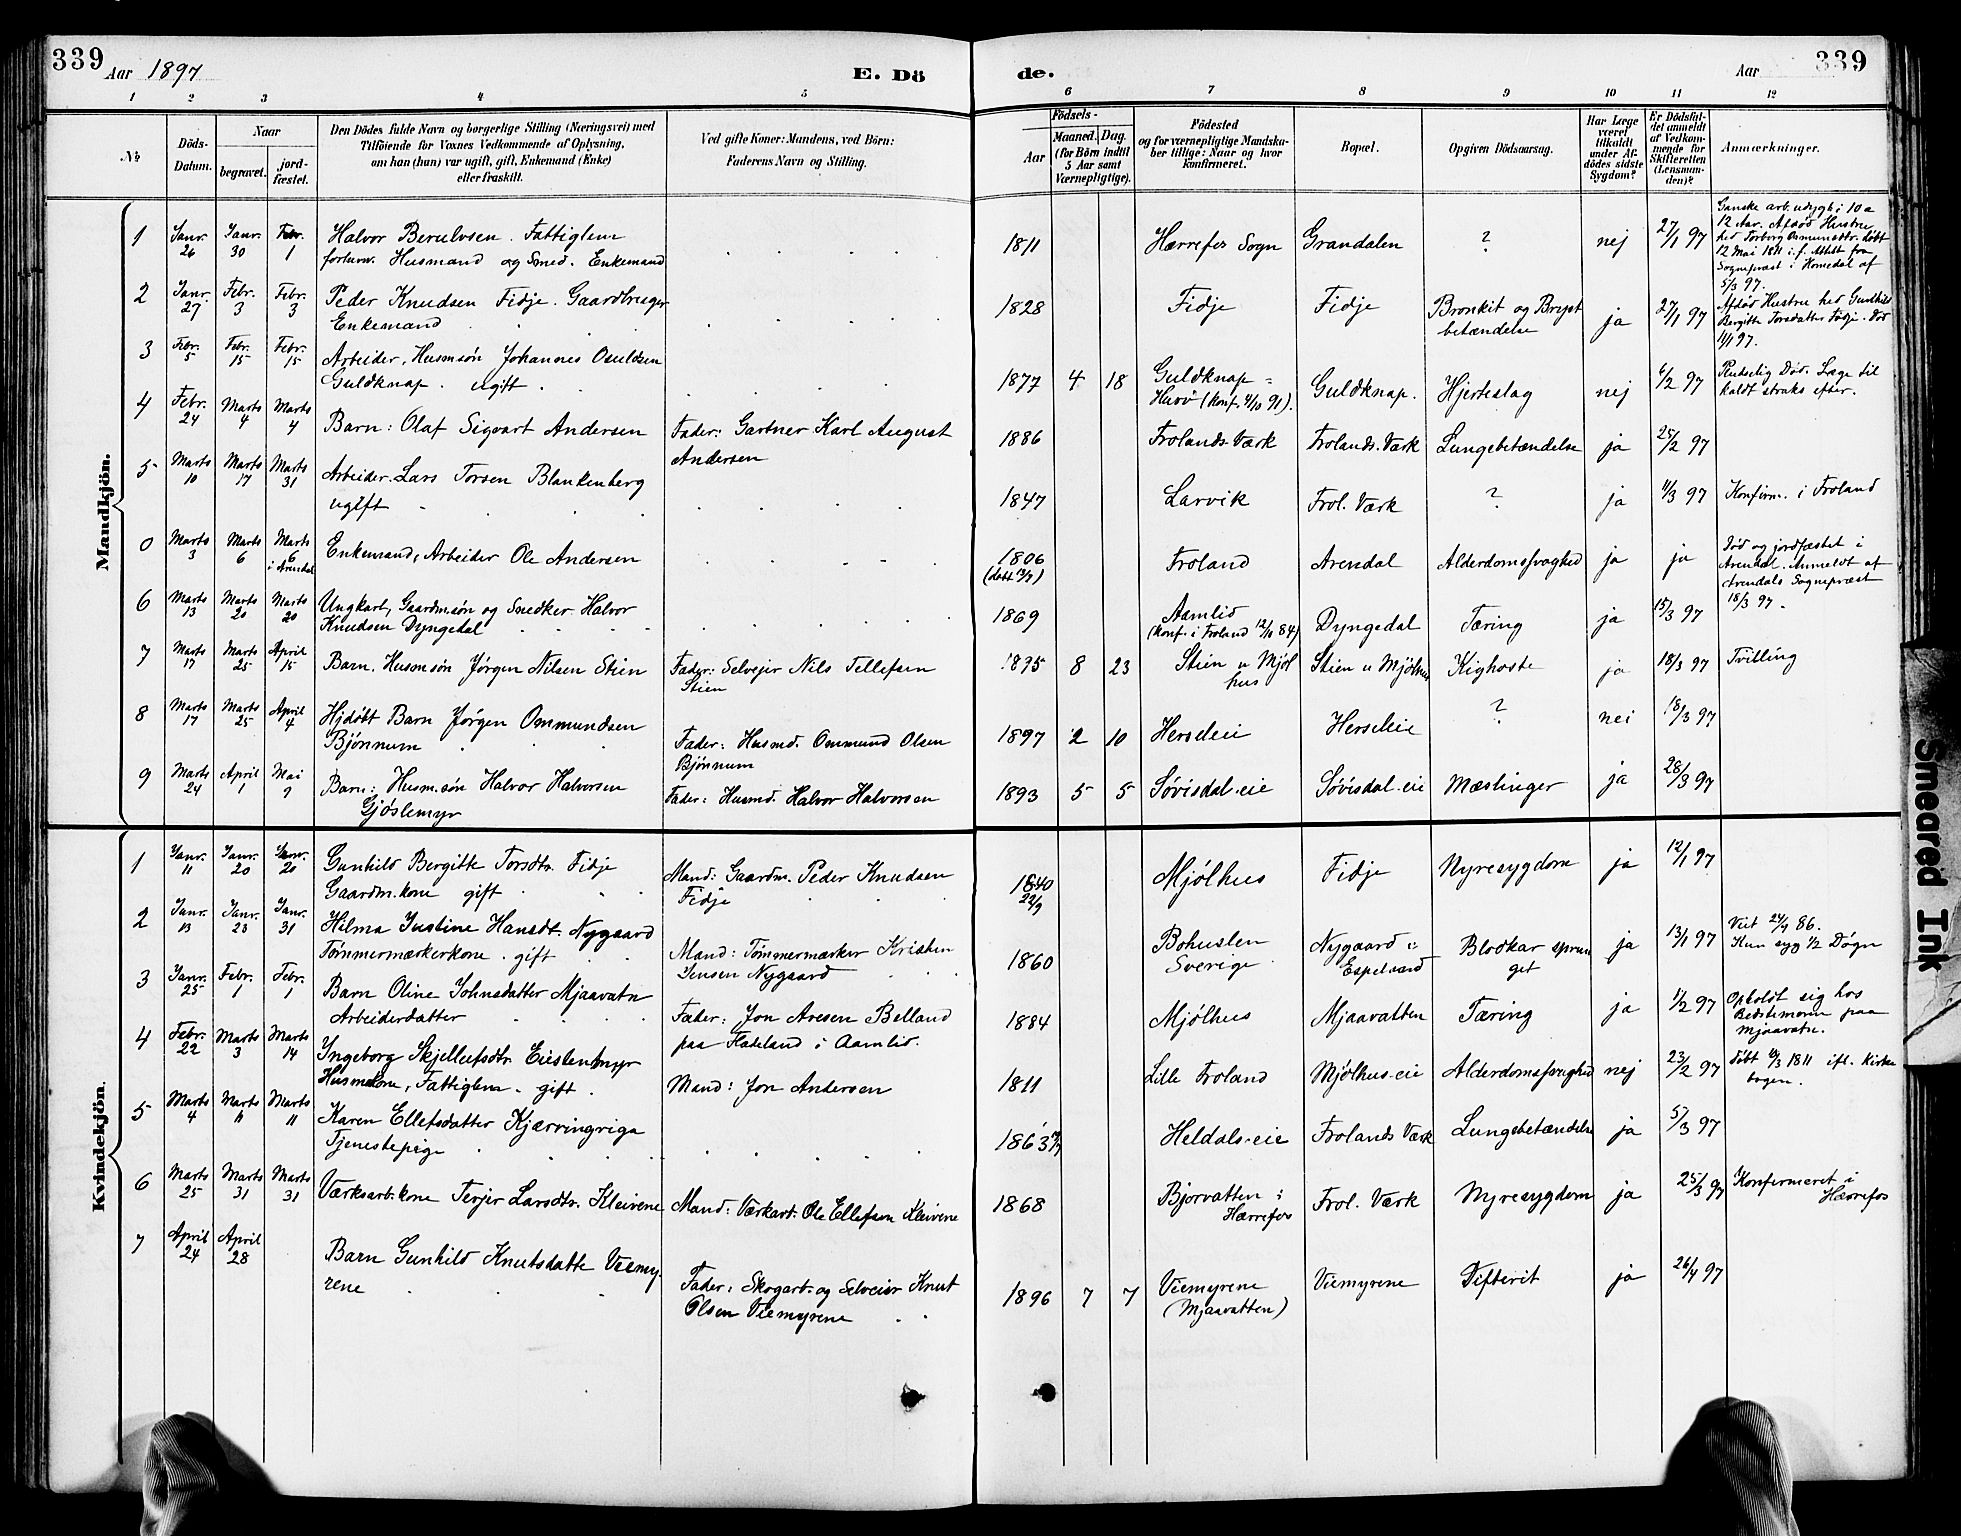 339 Aar 1897 E. Dö de. Aar 339
1 2 3 4 5 6 7 8 9 10 11 12
№
Döds-
Datum.
Naar
begravet.
jord-
fæstet.
Den Dödes fulde Navn og borgerlige Stilling (Næringsvei) med
Tilföiende for Voxnes Vedkommende af Oplysning,
om han (hun) var ugift, gift, Enkemand (Enke)
eller fraskilt.
Ved gifte Koner: Mandens, ved Börn:
Faderens Navn og Stilling.
Födsels-
Aar
Maaned. Dag.
(for Börn indtil
5 Aar samt
Værnepligtige).
Födested
og for værnepligtige Mandska-
ber tillige: Naar og hvor
konfirmeret.
Bopæl.
Opgiven Dödsaarsag.
Har Læge
været
tilkaldt
under Af-
dödes sidste
Sygdom?
Er Dödsfal-
det anmeldt
af Vedkom-
mende for
Skifteretten
(Lensman-
den)?
Anmærkninger.
Mandkjön.
1 Janr. 26 Janr. 30 Febr. 1 Halvor Berulvsen. Fattiglem
forhenv. Husmand og Smed. Enkemand
1811 Hærrefos Sogn Grandalen ? nej 27/1 97
Ganske arb.udygt i 10 a
12 Aar. Afdød Hustru
hed Torborg Osmundsdtr. Døbt
12 Mai 1811 i.f. Attest fra
Sognepræst i Homedal af
5/3 97.
2 Janr. 27 Febr. 3 Febr. 3 Peder Knudsen Fidje. Gaardbruger
Enkemand
1828 Fidje Fidje Bronkit og Bryst
betændelse ja 27/1 97
Afdød Hustru hed Gunhild
Bergitte Torsdatter Fidje. Død
11/1 97.
3 Febr. 5 Febr. 15 Febr. 15 Arbeider, Husmsøn Johannes Osuldsen
Guldknap. ugift.
1877 4 18 Guldknap =
(Konf. 4/10 91). Guldknap. Hjerteslag nej 6/2 97
Pludselig Død. Læge til
kaldt straks efter.
4 Febr. 24 Marts 4 Marts 4 Barn: Olaf Sigvart Andersen
Fader: Gartner Karl August
Andersen
1886 Frolands Værk Frolands. Værk Lungebetændelse ja 25/2 97
5 Marts 10 Marts 17 Marts 31 Arbeider. Lars Torsen Blankenberg
ugift
1847 Larvik Frol. Værk ? ja 11/3 97 Konfirm. i Froland
0 Marts 3 Marts 6 Marts 6 i Arendal Enkemand, Arbeider Ole Andersen
1806 Froland Arendal Alderdomssvaghed ja ja
Død og jordfæstet i
Arendal. Anmeldt af
Arendals Sognepræst
18/3 97.
6 Marts 13 Marts 20 Marts 20 Ungkarl, Gaardm.søn og Snedker Halvor
Knudsen Dyngedal
1869 Aamlid
(Konf. i Froland 12/10 84) Dyngedal Tæring ja 15/3 97
7 Marts 17 Marts 25 April 15 Barn. Husmsøn Jørgen Nilsen Stien
Fader: Selvejer Nils Tellefsen
Stien
1895 8 23 Stien u Mjøl
hus Stien u Mjølhus Kighoste ja 18/3 97 Tvilling
8 Marts 17 Marts 25 April 4 Hjdøbt Barn Jørgen Ommundsen
Bjönnum
Fader: Husmd. Ommund Olsen
Bjönnum
1897 2 10 Herseleie Herseleie ? nei 18/3 97
9 Marts 24 April 1 Mai 9 Barn: Husm.søn Halvor Halvorsen
Gjøslemyr
Fader: Husmd. Halvor Halvorsen
1893 5 5 Søvisdal-eie Søvisdal-eie Mæslinger ja 28/3 97
Kvindekjön.
1 Janr. 11 Janr. 20 Janr. 20 Gunhild Bergitte Torsdtr. Fidje
Gaardm.kone gift
Mand: Gaardm. Peder Knudsen
Fidje
1840
22/9 Mjølhus Fidje Nyresygdom ja 12/1 97
2 Janr. 13 Janr. 23 Janr. 31 Hilma Justine Hansdt. Nygaard
Tømmermærkerkone. gift
Mand: Tømmermærker Kristen
Jensen Nygaard
1860 Bohuslen
Sverige Nygaard i
Espeland Blodkar sprun
get ja 13/1 97
Viet 24/4 86.
Kun syg 1/2 Døgn
3 Janr. 25 Febr. 1 Febr. 1 Barn Oline Johnsdatter Mjaavatn
Arbeiderdatter
Fader: Jon Aresen Belland
paa Fladeland i Aamlid.
1884 Mjølhus Mjaavatten Tæring ja 1/2 97
Opholdt sig hos
Bedstemoren paa
Mjaavatn.
4 Febr. 22 Marts 3 Marts 14 Ingeborg Skjellufsdtr. Eiestenmyr
Husm.kone, Fattiglem. gift.
Mand: Jon Andersen
1811 Lille Froland Mjølhus-eie Alderdomssvaghed nej 23/2 97
Døbt 10/3 1811 ifl. Kirke
bogen.
5 Marts 4 Marts 11 Marts 11 Karen Ellefsdatter Kjærvingriga
Tjenestepige
1863 Heldals-eie Frolands Værk Lungebetændelse ja 5/3 97
6 Marts 25 Marts 31 Marts 31 Værksarb.kone Terjer Larsdtr. Kleivene Mand: Værkarb. Ole Ellefsen Kleivene
1868 Bjorvatten i
Hærrefos Frol. Værk Nyresygdom ja 25/3 97
Konfirmeret i
Hærrefos
7 April 24 April 28 Barn Gunhild Knutsdatte Viemy
rene
Fader: Skogarb. og Selveier Knut
Olsen Viemyrene
1896 7 7 Viemyrene
(Mjaavatten) Viemyrene Difterit ja 26/4 97
Smeared Ink